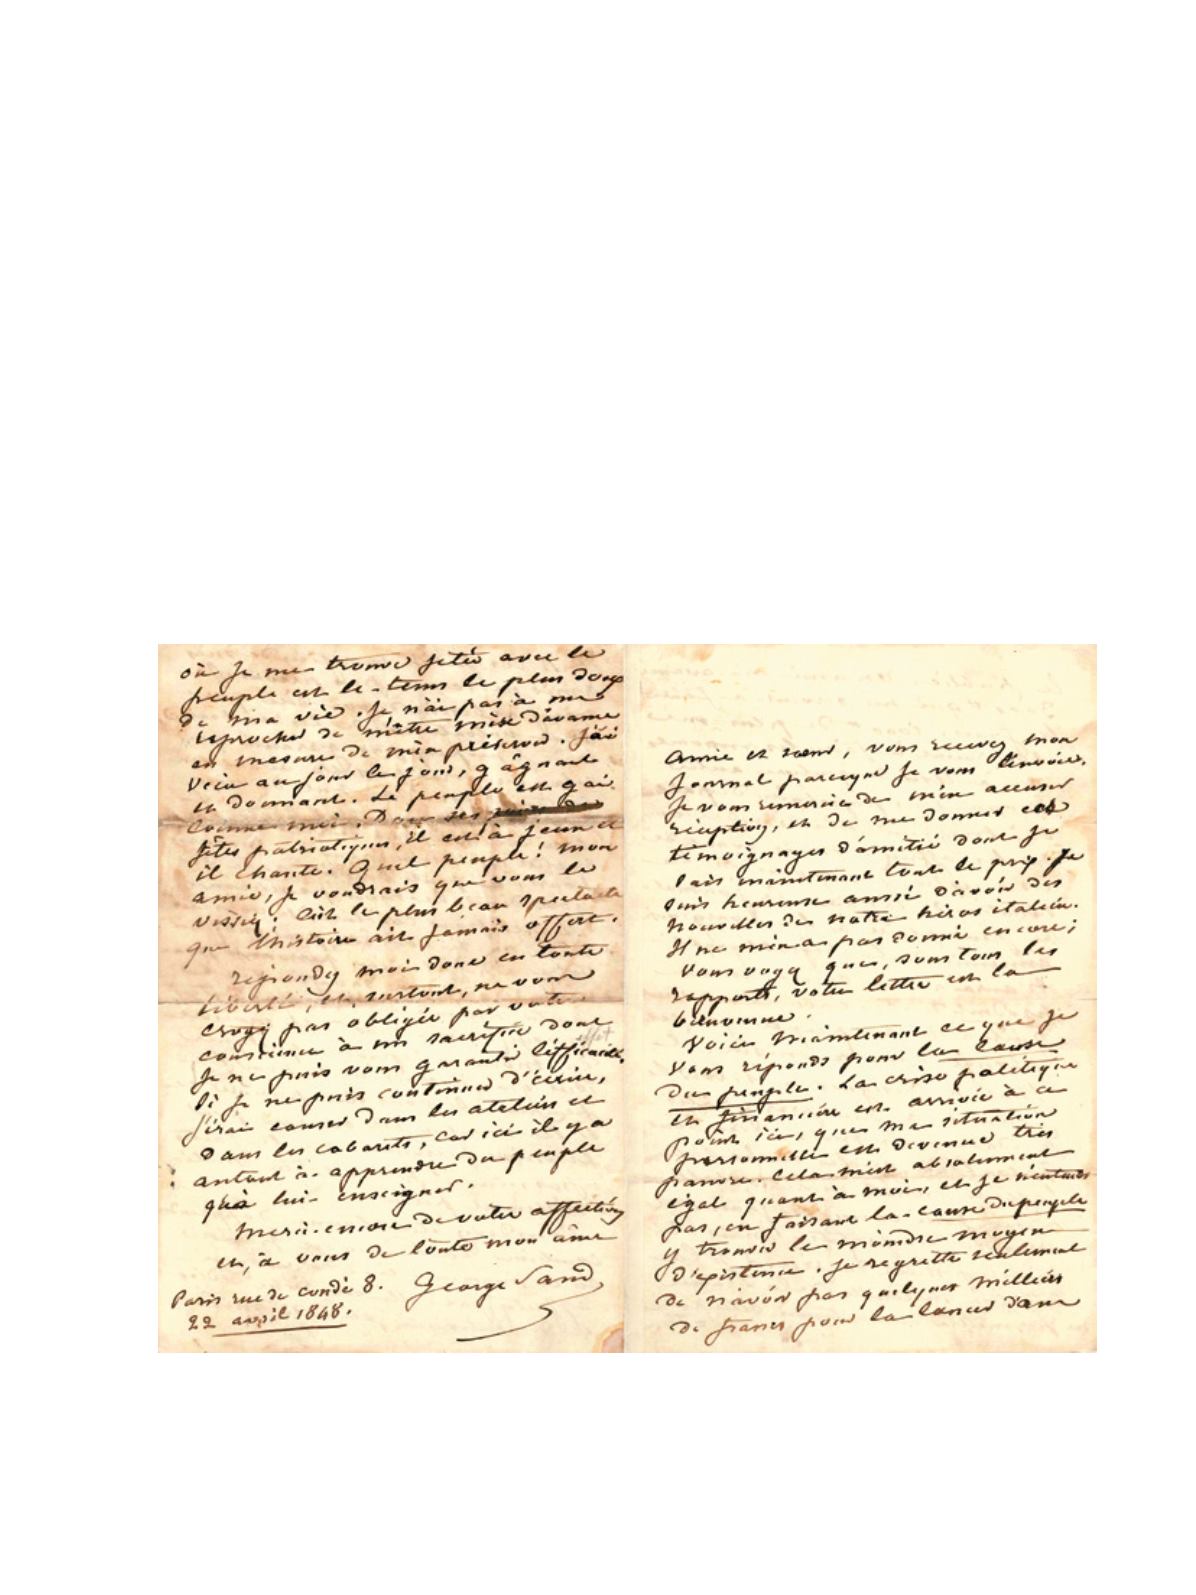 où je me trouve jetée avec le
peuple est le tems le plus doux
de ma vie. Je n'ai pas à me
reprocher de m'être mise d'avance
en mesure de m'en préserver. J'ai
vécu au jour le jour, gâgnant
et donnant. Le peuple est gai
comme moi. Dans ses
fêtes patriotiques, il est à jeun et
il chante. Quel peuple! mon
amie, je voudrais que vous le
vissiez! C'est le plus beau spectacle
que l'histoire ait jamais offert.
répondez moi donc en toute
liberté, et, surtout, ne vous
croyez pas obligée par votre
conscience à un sacrifice dont
je ne puis vous garantir l'efficacité.
Si je ne puis continuer d'écrire,
j'irai causer dans les ateliers et
dans les cabarets, car ici il y a
autant à apprendre du peuple
qu'à lui enseigner.
Merci encore de votre affection
et, à vous de toute mon âme
George Sand
Paris rue de condé 8.
22 avril 1848.
Amie et sœur, vous recevez mon
journal parceque je vous l'envoie.
Je vous remercie de m'en accuser
réception, et de me donner ces
témoignages d'amitié dont je
sais maintenant tout le prix. Je
suis heureuse aussi d'avoir des
nouvelles de notre héros italien.
Il ne m'en a pas donné encore;
vous voyez que, sous tous les
rapports, votre lettre est la
bienvenue.
Voici maintenant ce que je
vous réponds pour la cause
du peuple. La crise politique
et financière est arrivée à ce
point ici, que ma situation
personnelle est devenue très
pauvre. Cela m'est absolument
égal quant à moi, et je n'entends
pas, en faisant la cause du peuple
y trouver le moindre moyen
d'existence. Je regrette seulement
de n'avoir pas quelques milliers
de francs pour la lancer dans